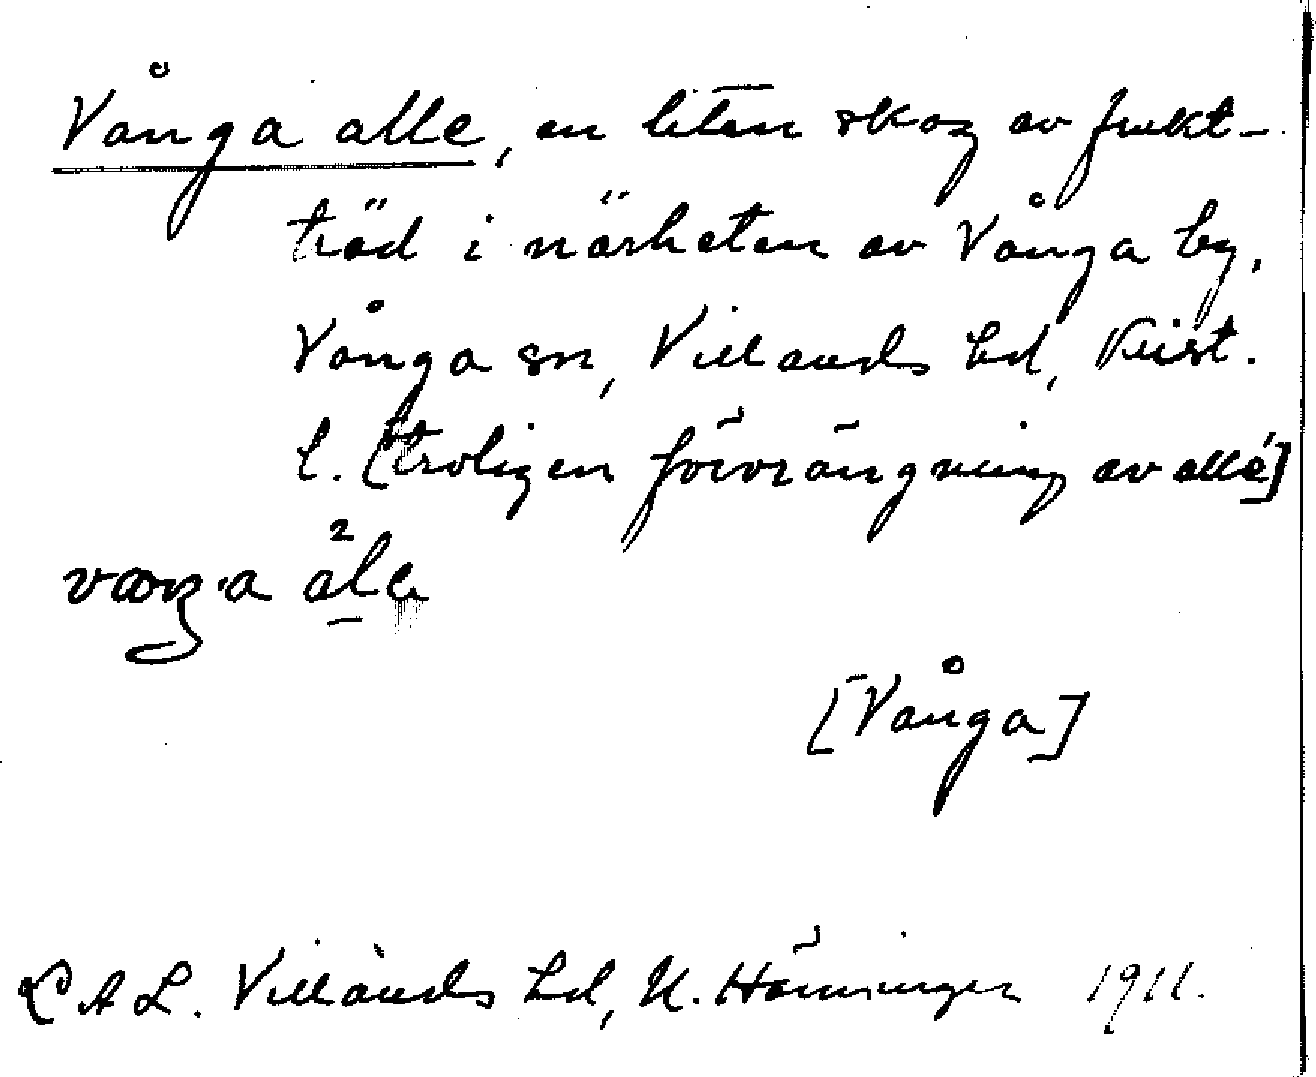 Vånga alle, en liten skog av frukt-
träd i närheten av Vånga by,
Vånga sn, Villands hd, Krist.
l. [troligen förvrängning av allé]
[Vånga]
L A L. Villands hd, N. Hänninger 1911.